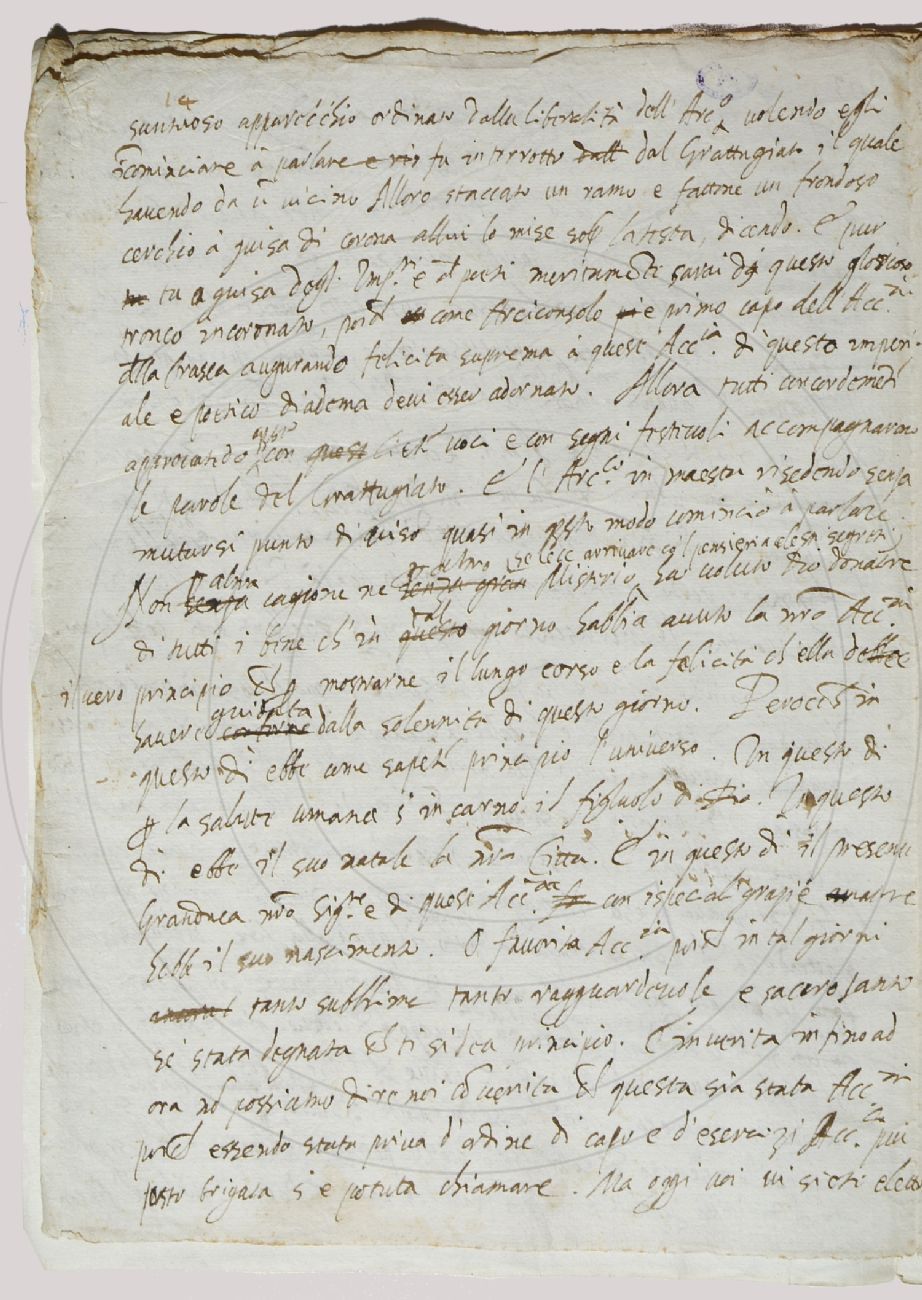 suntuoso apparécchio ordinato dalla liberalità dell' Arc.o volendo egli
cominciare à parlare fu interrotto dal Grattugiato il quale
havendo da ũ vicino Alloro staccato un ramo e fattone un frondoso
cerchio à guisa di corona allui lo mise sop.a la testa, dicendo. E pur
tu a guisa degl' Imp.ri e d' poeti meritamẽte sarai di questo glorioso
tronco incoronato, poichè come Arciconsolo e primo capo dell' Acc.mia
dlla Crusca augurando felicita suprema à quest' Acc.ia di questo imperi-
ale e poetico diadema devi esser adornato. Allora tutti concordemẽte
approvando qsto con liete voci e con segni festivoli accompagnaron
le parole del Grattugiato. E l' Arc.lo in maesta risedendo senza
mutarsi punto di viso quasi in qsto modo cominciò à parlare
se lece arrivare cõ 'l pensieri a celesti segreti
Non senza cagione ne senza gran Misterio ha voluto Dio donatore
di tutti i bene ch' in questo giorno habbia avuto la nrã Acc.mia
il vero principio chè p mostrarne il lungo corso e la felicità ch' ella debbe
guidata
havere dalla solennità di questo giorno. Perocchè in
questo dì ebbe come sapete principio l' universo. In questo dì
p la salute umana s' incarnò il figluolo di Dio. In questo
dì ebbe il suo natale la nrã Città. E in questo dì il presente
Granduca nrõ Sig.re e di quest' Acc.mia con ispecial' grazie
hebbe il suo nascimento. O favorita Acc.mia poichè in tal giorni
tanto subblime tanto ragguardevole e sacrosanto
se' stata degnata chè ti si dea principio. E in verita infino ad
ora nõ possiamo dire noi cõ verità chè questa sia stata Acc.mia
poichè essendo stata priva d' ordine di capo e d' esercizi Acc.ia più
psto brigata s' e potuta chiamare. Ma oggi voi vi siete eletto